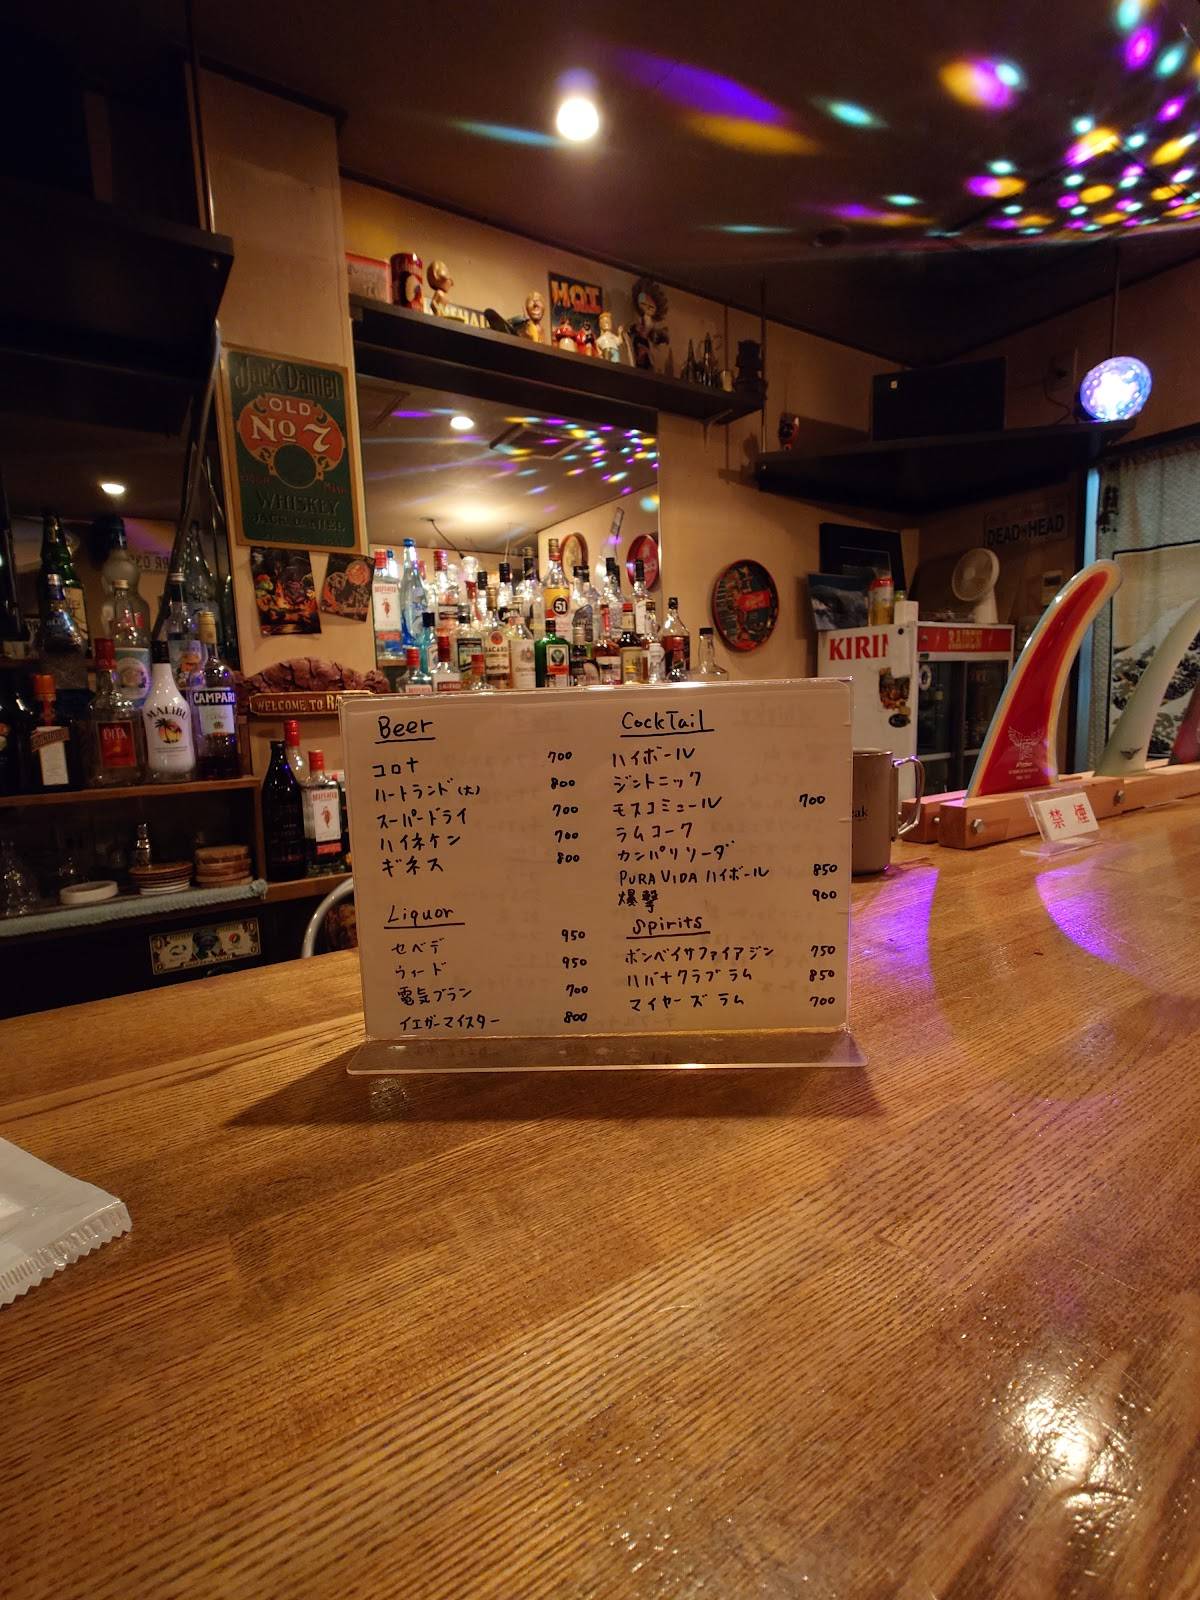 Jack Daniel
OLD
No 7
WHISKEY
JACK DANIEL
HOT
DEAD HEAD
KIRIN
RAIDEN
51
BACARDI
MALIBU
CAMPARI
DITA
WELCOME TO RA
禁煙
Beer
コロナ 700
ハートランド(大) 800
スーパードライ 700
ハイネケン 700
ギネス 800
Liquor
セベデ 950
ウィード 950
電気ブラン 700
イエガーマイスター 800
CockTail
ハイボール
ジントニック
モスコミュール 700
ラムコーク
カンパリソーダ
PURA VIDA ハイボール 850
爆撃 900
Spirits
ボンベイサファイアジン 750
ハバナクラブ ラム 850
マイヤーズ ラム 700